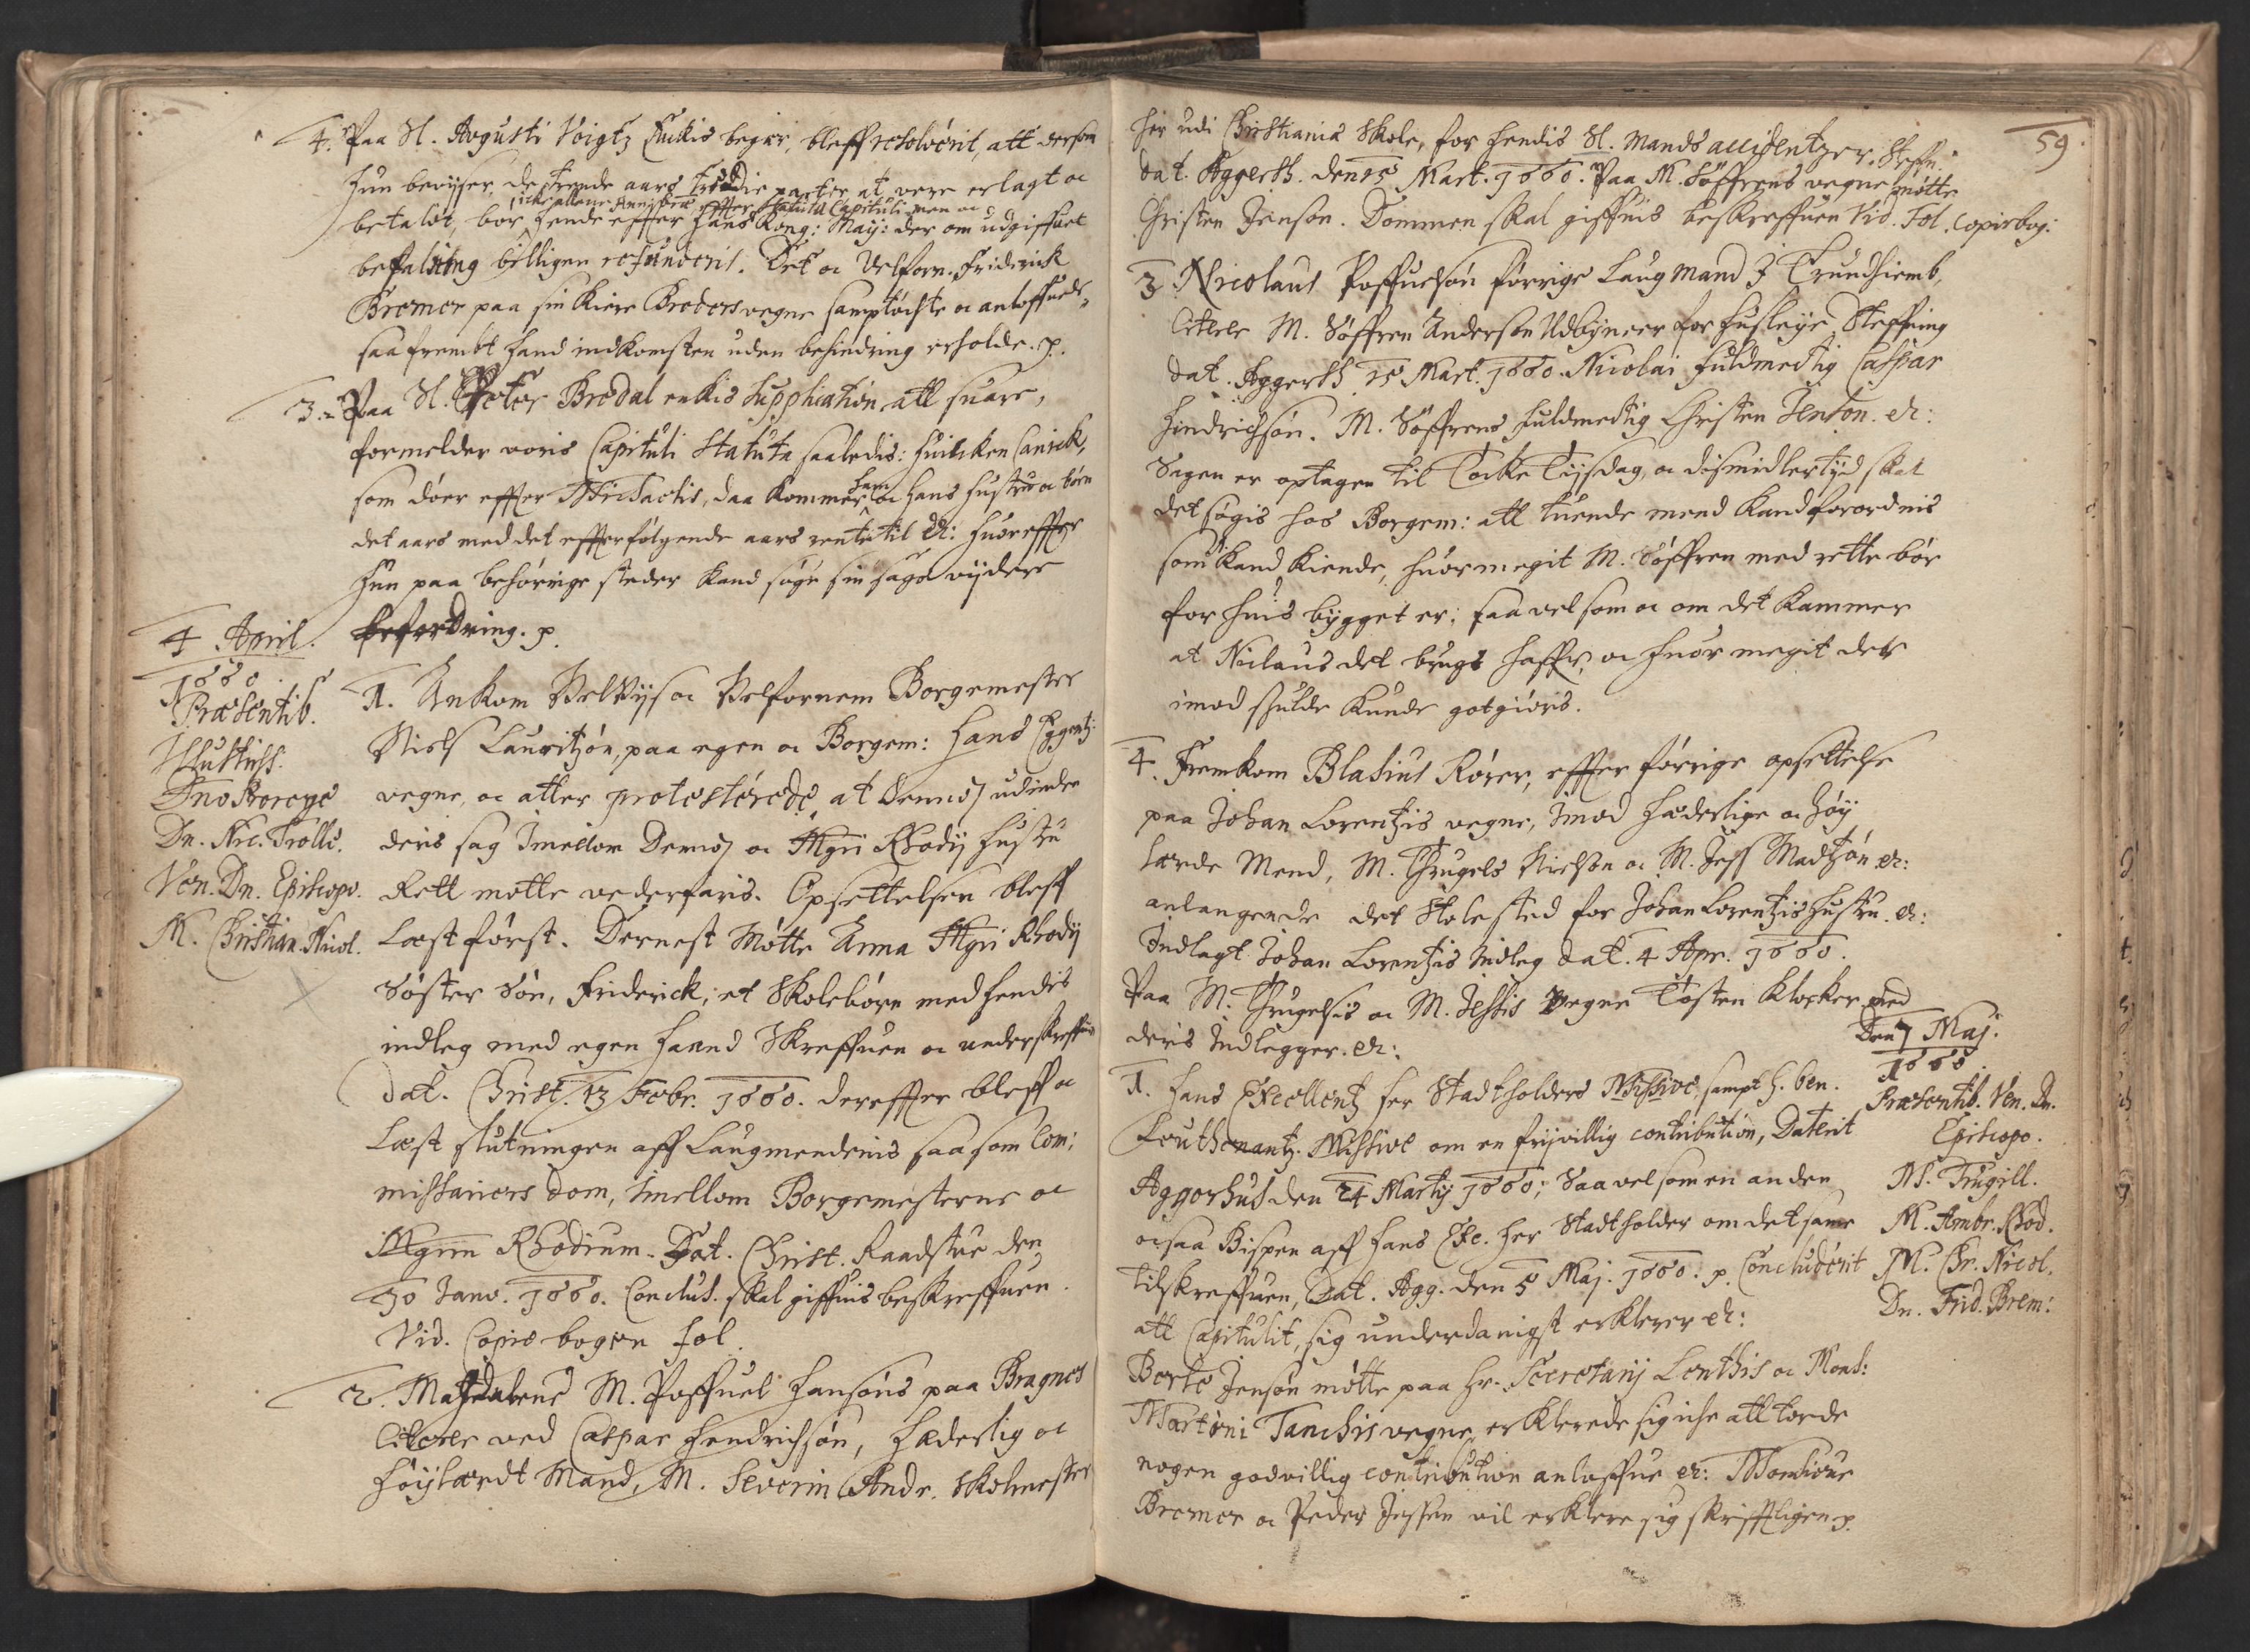 4. Paa Sl. Augusti Voigtz Enckis begær, bleff resolverit, att dersom
hun beviser, de trende aars tredie parter at vere erlagt oc
icke allene Anni gratiæ effter Statuta Capituli men oc
betalt, bør hende effter Hans Kong: May: der om udgiffuet
befalning billigen refunderis. Det oc Velforn. Friderick
Bremer paa sin kiere Broders vegne samptøchte oc anloffuede,
saa frembt hand indkomsten uden behindring erholde. p.
3. Paa Sl. Peter Bredal enckis supplication att suare,
formelder voris Capituli Statuta saaledis: huilcken Canick,
som døer effter Michaelis, da kommer ham oc hans hustru oc børn
det aars med det effterfølgende aars rente til etc: huoreffter
hun paa behørige steder kand søge sin sags vijdere
befordring. p.
4 April.
1660
Præsentib.
Illustriss.
Dno Prorege
Dn. Nic. Trolle.
Ven. Dn. Episcopo.
M. Christian. Nicol.
1. Ankom Velvijse oc Velfornem Borgemester
Niels Lauritzøn, paa egen oc Borgem: Hans Eggertz
vegne, oc atter protesterede, at dennem udinden
deris sag Imellom Dennem oc Mgri Rhodij hustru
Rett motte vederfaris. Opsettelsen bleff
Læst først. Dernest Møtte Anna Mgri Rhodij
Søster Søn, Friderick, et Skolebørn med hendis
indleg med egen haand Skreffuen oc underskreffuen
dat. Christ. 13 Febr. 1660. dereffter bleff oc
Læst slutningen aff Laugmendenis saa som Com:
missariers dom, Imellom Borgemesterne oc
Mgrm Rhodium. Dat. Christ. Raadstue den
30 Janv. 1660. Conclus. skal giffuis beskreffuen.
Vid. Copie bogen fol.
2. Magdalene M. Poffuel Hansøns paa Bragnes
Citerer ved Caspar Hendrichsøn, Hæderlig oc
Høylærdt Mand, M. Severin Andr. Skolmester
59
her udi Christiania Skole, for hendis Sl. Mands accidentzer. Steffn.
dat. Aggersh. den 15 Mart. 1660. Paa M. Søffrens vegne møtte
Christen Jenson. Dommen skal giffuis beskreffuen Vid. Fol. Copiebog:
3 Nicolaus Poffuelsøn førrige Laugmand J Trundhiemb,
Citerer M. Søffren Anderson Udbyneer for husleye, Steffning
dat. Aggersh 15 Mart. 1660. Nicolai fuldmectig Caspar
Hindrichsøn. M. Søffrens fuldmectig Christen Jenson. etc:
Sagen er optagen til Tocke Tijsdag, oc dismidlertijd skal
det søgis hos Borgem: att tuende mend kand forordnis
som kand kiende, huormegit M. Søffren med rette bør
for huis bygget er; saa vel som oc om det kammer
at Niclaus det brugt haffr, oc huor megit der
imod skulde kunde gotgiøris.
4. Fremkom Blasius Rører, effter førrige opsettelse
paa Johan Lorentzis vegne, Imod hæderlige oc Høy
lærde Mend, M. Thrugels Nielsøn oc M. Jess Madtzøn etc:
anlangende det Stolested for Johan Lorentzis hustru. etc:
Indlagt Johan Lorentzis Indleg dat. 4 Apr. 1660.
Paa M. Thrugelsis oc M. Jessis vegne Tosten Klocker med
deris Indlegger. etc:
Den 7 Maj.
1660
Præsentib. Ven. Dn.
Episcopo.
M. Trugill.
M. Ambr. Rhod.
M. Chr. Nicol.
Dn. Frid. Brem:
1. Hans Excellentz her Stadtholders Missive sampt H. Gen.
Leuthenantz. Missive om en frijvillig contribution, Daterit
Aggershus den 24 Martij 1660; saa vel som en anden
ocsaa Bispen aff Hans Exc. her Stadtholder om det same
tilskreffuen, Dat. Agg. den 5 Maj. 1660. p. Concluderit
att Capitulit, sig underdanigst erklerer etc:
Berte Jensøn møtte paa Hr. Secretarij Lenthis oc Mons:
Martini Tanchis vegne, erklerede sig iche att torde
nogen godvillig contribution anloffue etc: Monsieur
Bremer oc Peder Jessen vil erklere sig skrifftligen p.